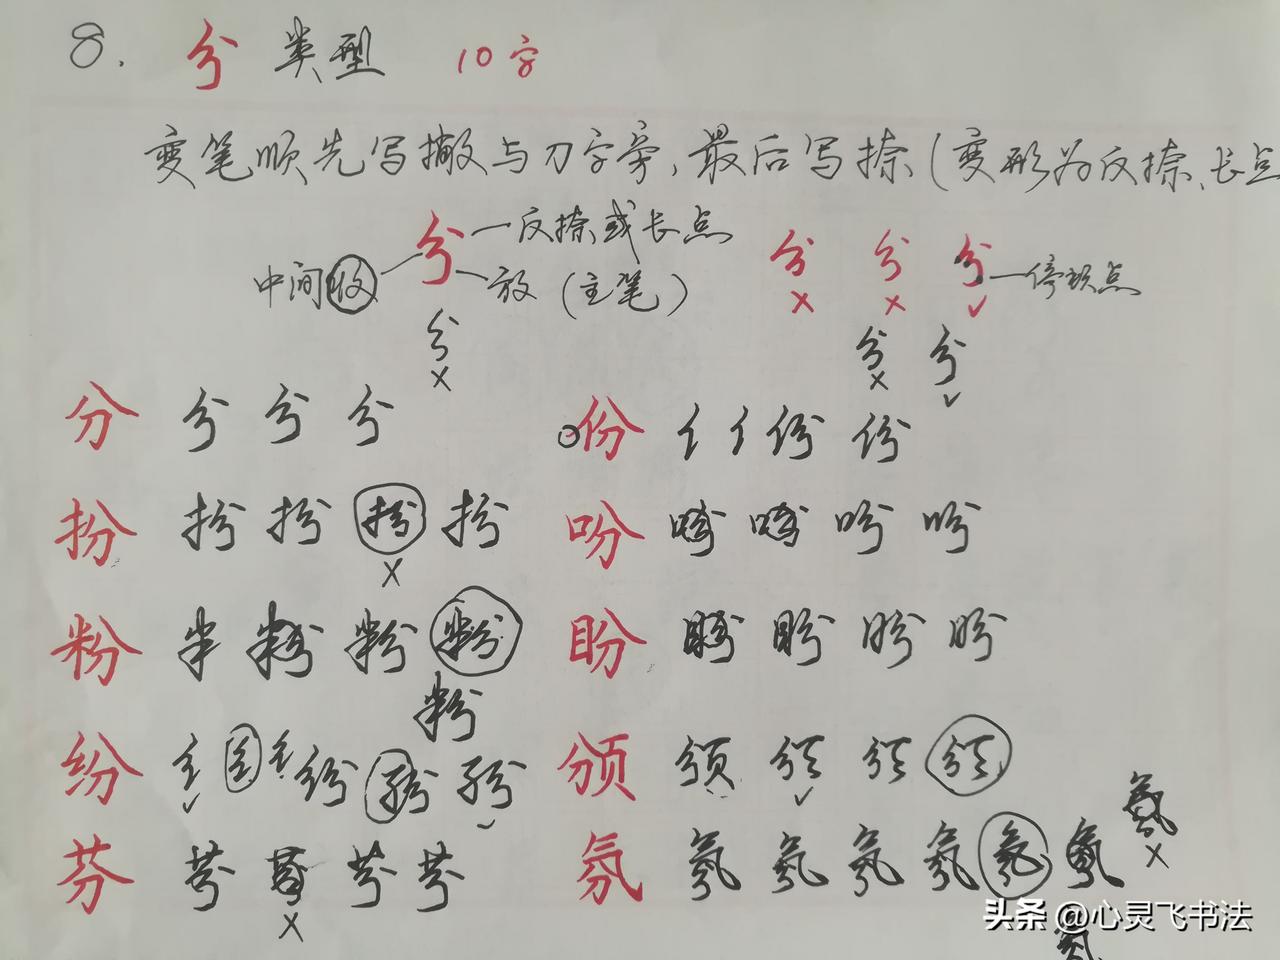 8. 分类型 10字
变笔顺先写撇与刀字旁,最后写捺(变形为反捺、长点
分 一反捺或长点 分 分 分
中间收 一放(主笔) × × ✓ 一停顿点
分 分 分
× × ✓
分 分 分 分 份 亻 亻 份 份
扮 扮 扮 扮 扮 吩 吩 吩 吩 吩
×
粉 米 粉 粉 粉 盼 盼 盼 盼 盼
粉
纷 纟 纟 纟 纷 纷 纷 颁 颁 颁 颁 颁
✓ ✓ ✓
芬 芬 芬 芬 芬 氛 氛 氛 氛 氛 氛 氛 氛
× ×
头条 @心灵飞书法